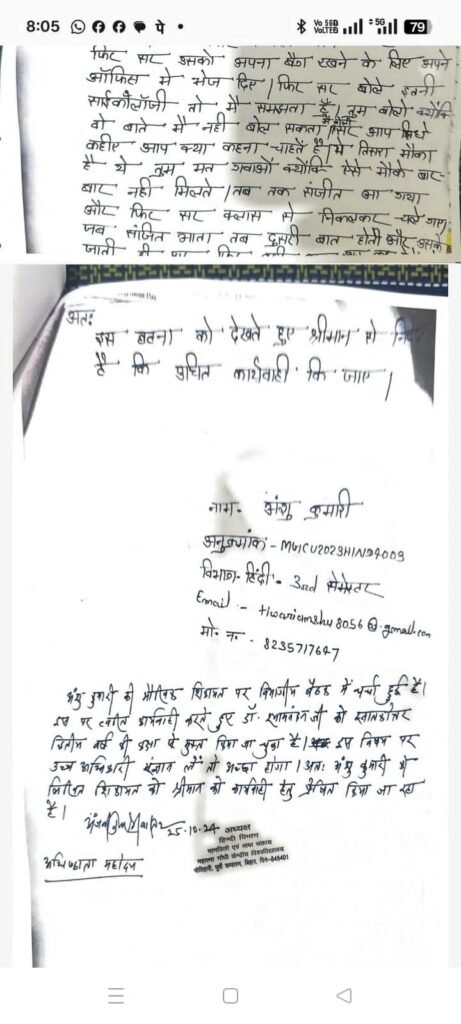 8:05
Vo 5G
VoLTE
5G
79
फिर सर उसको अपना बैग रखने के लिए अपने
ऑफिस में भेज दिए। फिर सर बोले इतनी
साईकोलॉजी तो मैं समझता हूँ। तुम बोलो क्योंकि
वो बाते मैं नही बोल सकता। सर आप
कहीए आप क्या कहना चाहते है। तिसरा मौका
है ये तुम मत गवाओं क्योंकि ऐसे मौके बार-
बार नही मिलते। तब तक संजीत आ गया
और फिर सर क्लास से निकलकर चले गए।
जब संजित आता तब दुसरी बात होती और उसके
अतः
इस घटना को देखते हुए श्रीमान से
है कि उचित कार्यवाही कि जाए।
नाम- अंशु कुमारी
अनुक्रमांक - MGCU2023HIND4009
विभाग- हिंदी - 3rd सेमेस्टर
Email - tiwarianshu8056@gmail.com
मो. न. - 8235717647
अंशु कुमारी की मौखिक शिकायत पर विभागीय बैठक में चर्चा हुई है।
इस पर त्वरित कार्यवाही करते हुए डॉ. जी को स्नातकोत्तर
द्वितीय वर्ष की कक्षा से मुक्त किया जा चुका है। इस विषय पर
उच्च अधिकारी संज्ञान लें तो अच्छा होगा। अतः अंशु कुमारी की
लिखित शिकायत को श्रीमान को कार्यवाही हेतु प्रेषित किया जा रहा
है।
25.10.24
अध्यक्ष
हिन्दी विभाग
मानविकी एवं भाषा संकाय
महात्मा गाँधी केन्द्रीय विश्वविद्यालय
मोतिहारी, पूर्वी चम्पारण, बिहार, पिन-845401
अधिष्ठाता महोदय